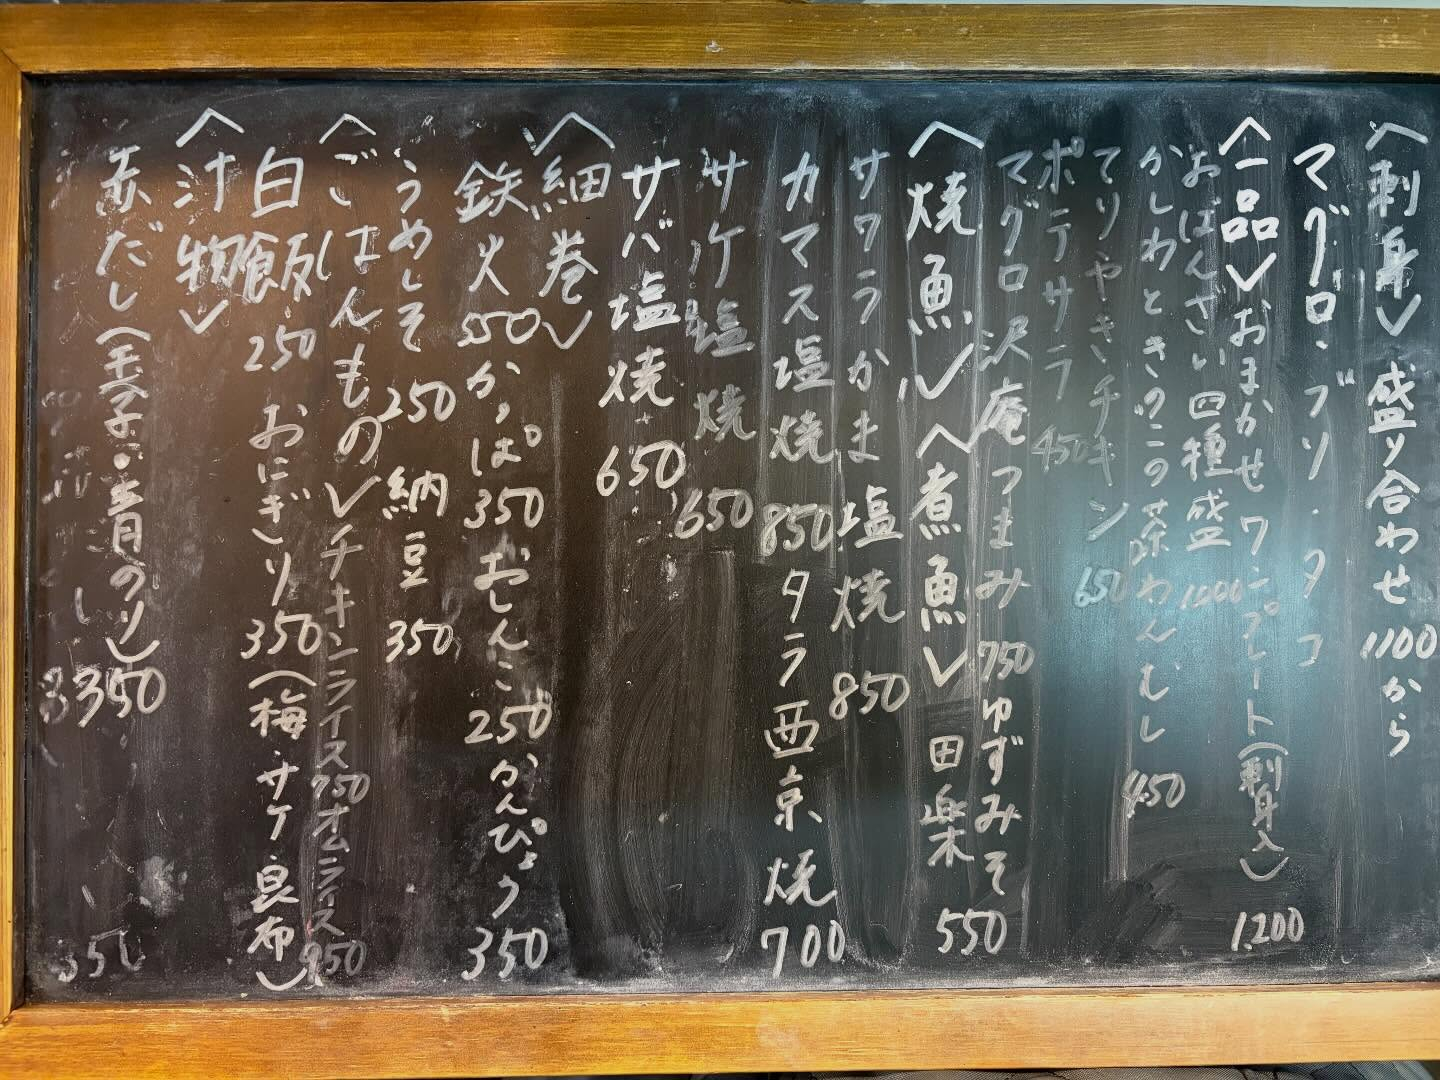 〈刺身〉盛り合わせ 1100から
マグロ・ブリ・タコ
〈一品〉おまかせワンプレート(刺身入) 1,200
おばんざい四種盛 1,000
かしわときのこの茶わんむし 450
てりやきチキン 650
ポテサラ 450
マグロ沢庵つまみ 750 ゆずみそ
〈焼魚〉〈煮魚〉田楽 550
サワラかま塩焼 850
カマス塩焼 850 タラ西京焼 700
サケ塩焼 650
サバ塩焼 650
〈細巻〉
鉄火 550 かっぱ 350 おしんこ 250 かんぴょう 350
うめしそ 250 納豆 350
〈ごはんもの〉チキンライス 750 オムライス 950
白飯 250 おにぎり 350(梅・サケ・昆布)
〈汁物〉
赤だし(玉子・青のり) 350